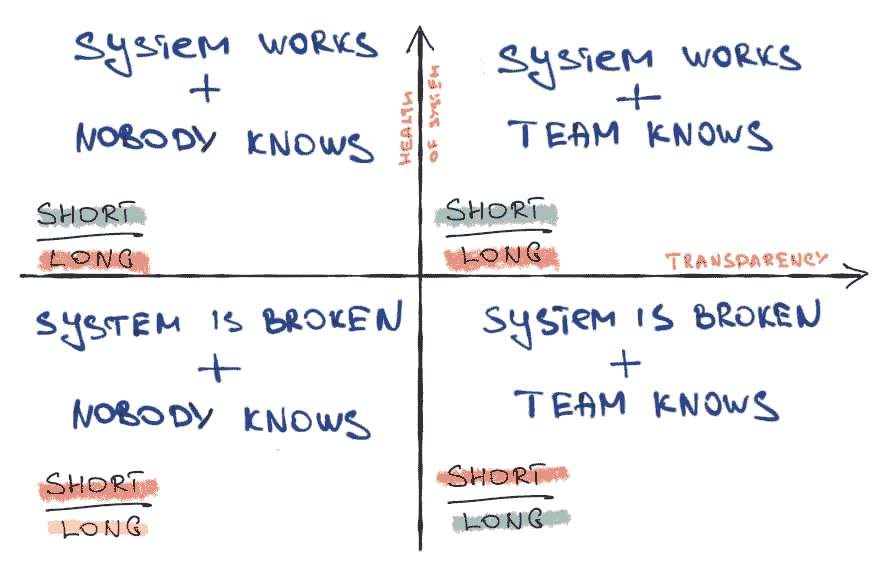 SYSTEM WORKS
+
NOBODY KNOWS
SHORT
LONG
HEALTH
OF SYSTEM
SYSTEM WORKS
+
TEAM KNOWS
SHORT
LONG
TRANSPARENCY
SYSTEM IS BROKEN
+
NOBODY KNOWS
SHORT
LONG
SYSTEM IS BROKEN
+
TEAM KNOWS
SHORT
LONG